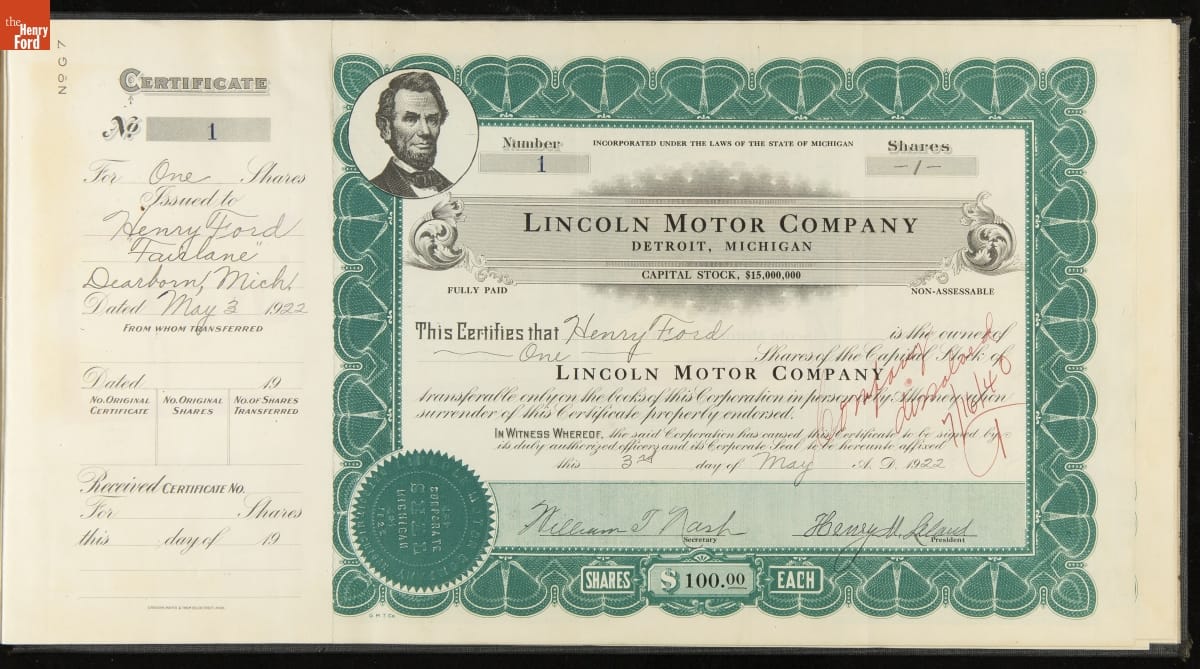 the
Henry
Ford
No G 7
CERTIFICATE
No 1
For One Shares
Issued to
Henry Ford
"Fairlane"
Dearborn, Mich.
Dated May 3 1922
FROM WHOM TRANSFERRED
Dated 19
NO. ORIGINAL CERTIFICATE
NO. ORIGINAL SHARES
NO. OF SHARES TRANSFERRED
Received CERTIFICATE NO.
For Shares
this day of 19
Number
1
INCORPORATED UNDER THE LAWS OF THE STATE OF MICHIGAN
Shares
-1-
LINCOLN MOTOR COMPANY
DETROIT, MICHIGAN
CAPITAL STOCK, $15,000,000
FULLY PAID
NON-ASSESSABLE
This Certifies that Henry Ford is the owner of
One Shares of the Capital Stock of
LINCOLN MOTOR COMPANY
transferable only on the books of this Corporation in person or by Attorney upon
surrender of this Certificate properly endorsed.
Company
dissolved
7/16/40
IN WITNESS WHEREOF, the said Corporation has caused this Certificate to be signed by
its duly authorized officers and its Corporate Seal to be hereunto affixed
this 3rd day of May A. D. 1922
CORPORATE
SEAL
MICHIGAN
William T. Nash
Secretary
Henry M. Leland
President
SHARES $100.00 EACH
G. M. T. Co.